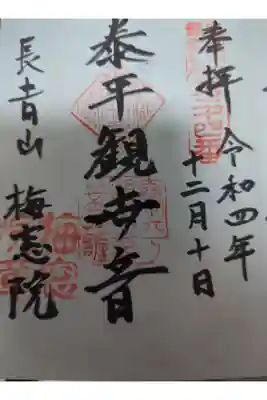 奉拝
令和四年
十二月十日
泰平観世音
長青山
梅窓院